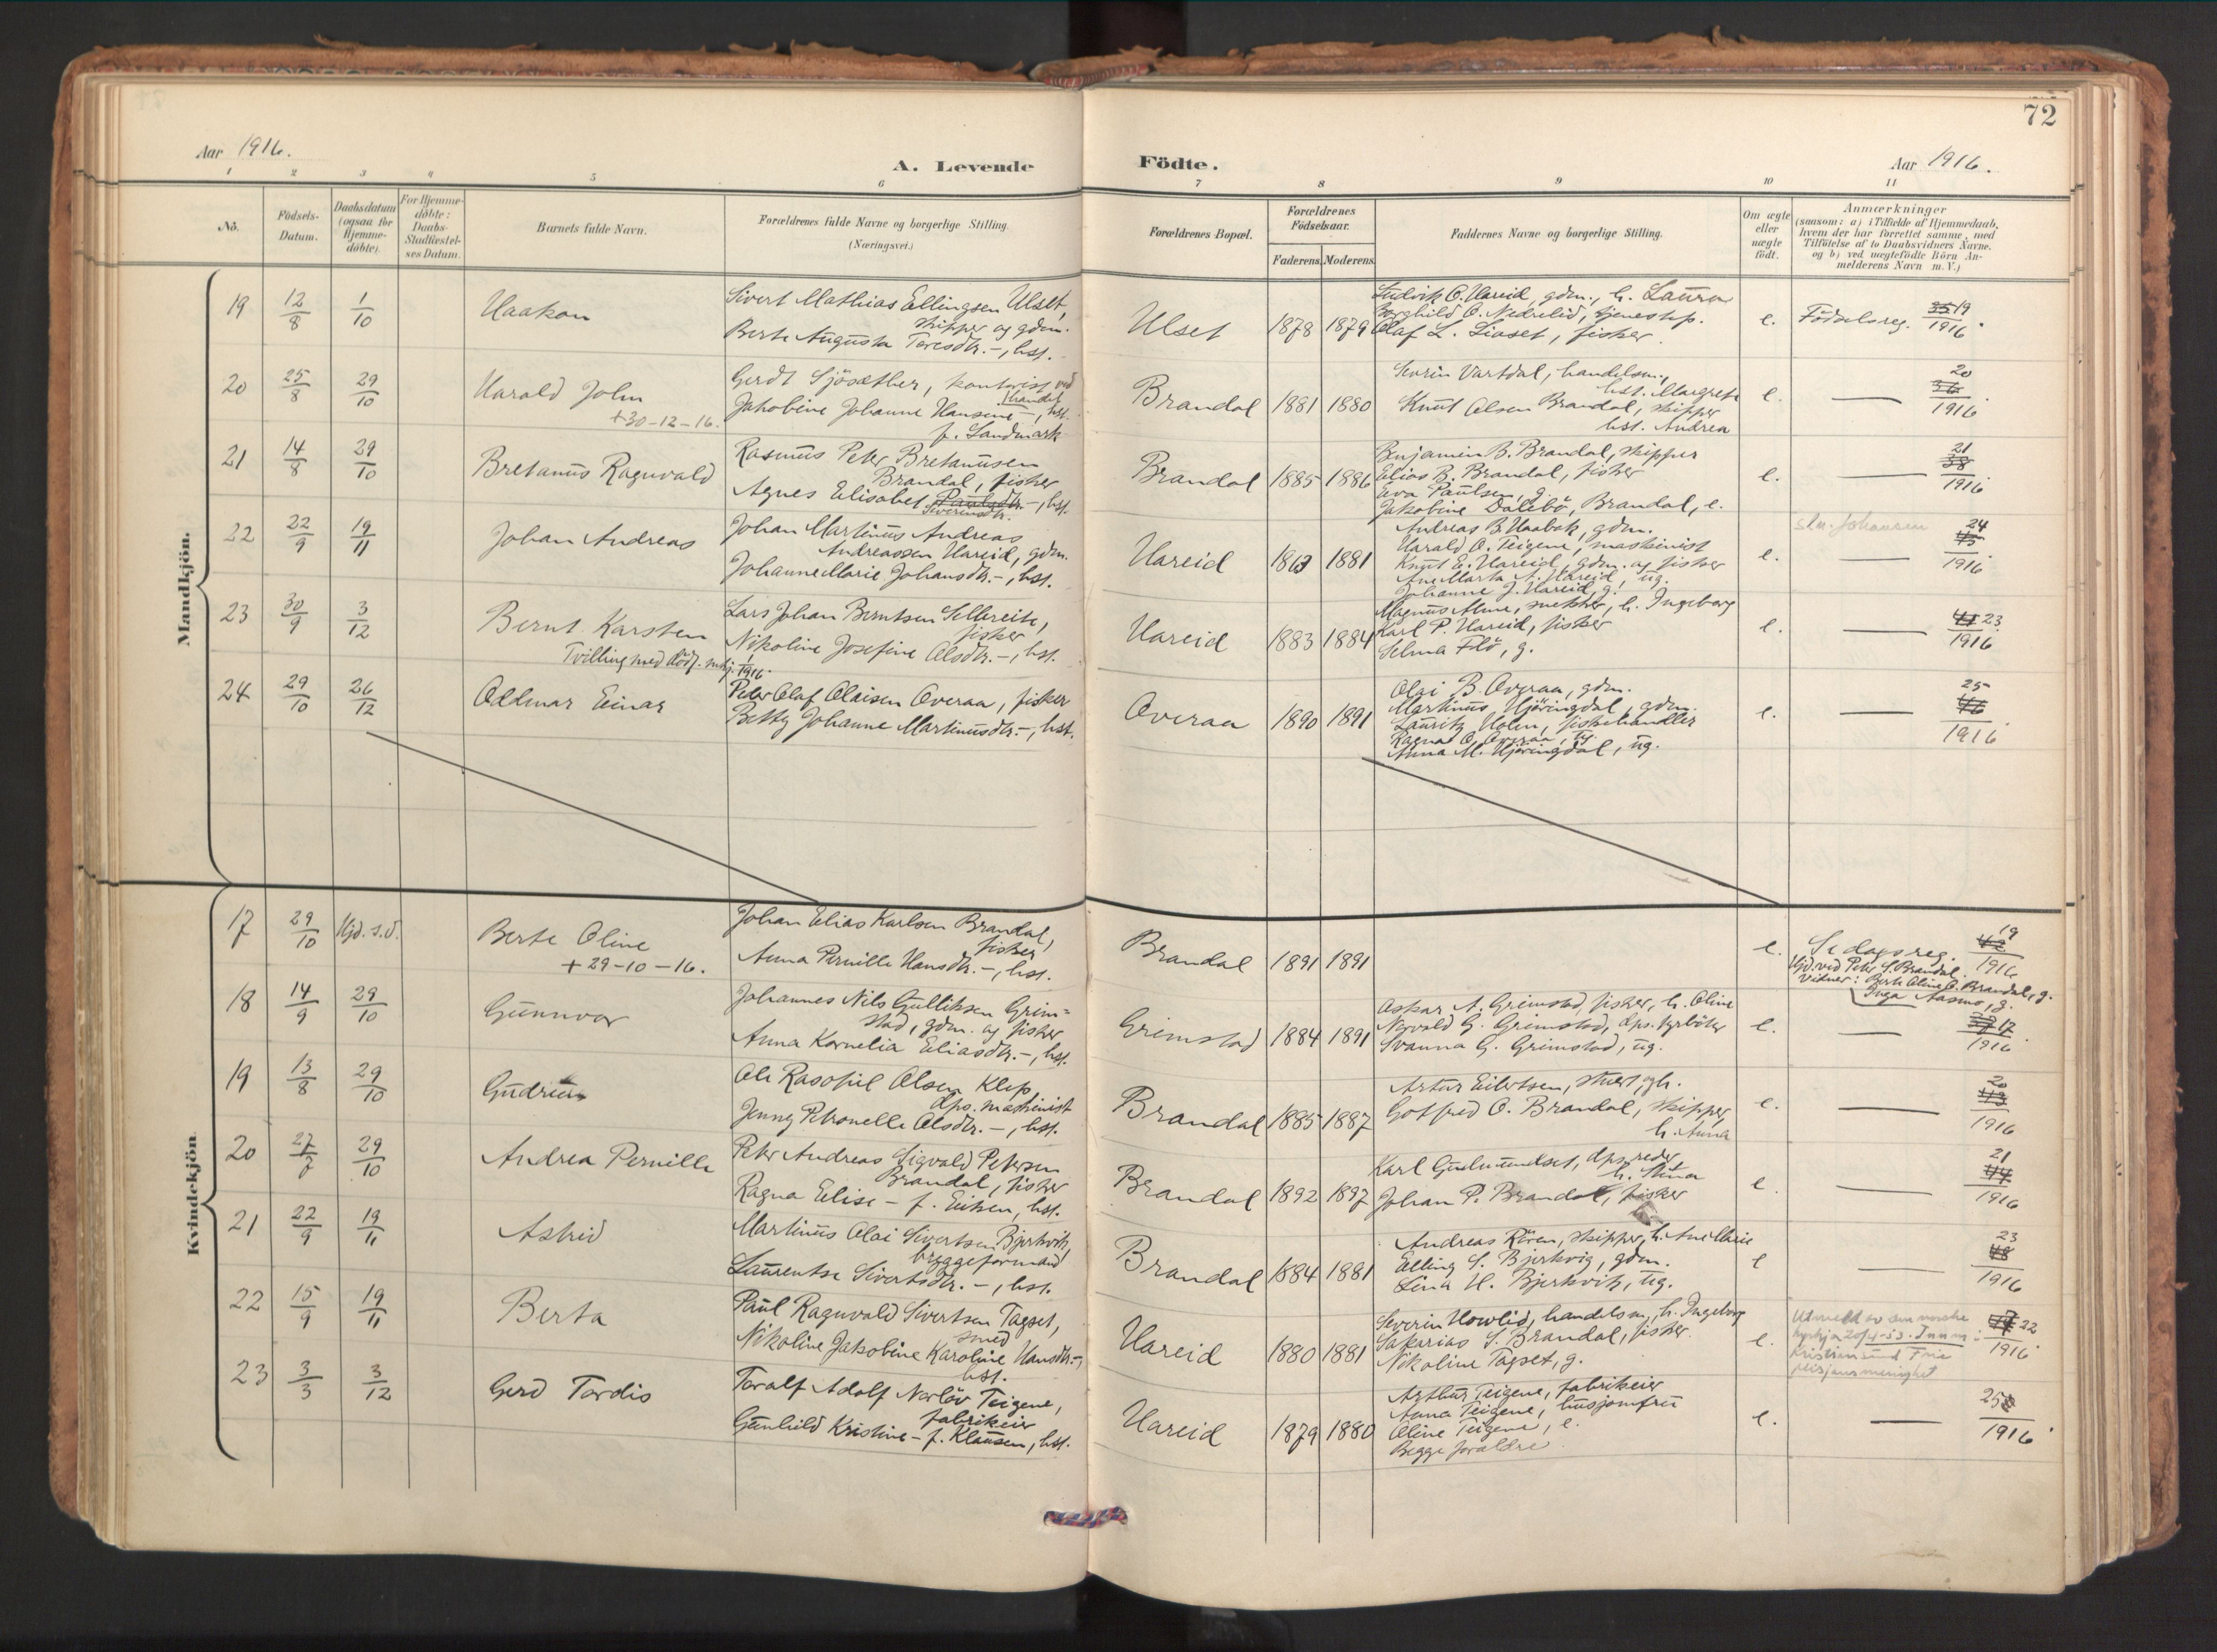 72
Aar 1916.
A. Levende
Födte.
Aar 1916.
1 2 3 4 5 6 7 8 9 10 11
No.
Födsels-
Datum.
Daabsdatum
(ogsaa for
Hjemme-
döbte).
For Hjemme-
döbte:
Daabs-
Stadfæstel-
ses Datum.
Barnets fulde Navn.
Forældrenes fulde Navne og borgerlige Stilling.
(Næringsvei.)
Forældrenes Bopæl.
Forældrenes
Födselsaar.
Faderens. Moderens.
Faddernes Navne og borgerlige Stilling.
Om ægte
eller
uægte
födt.
Anmærkninger
(saasom: a) i Tilfælde af Hjemmedaab,
hvem der har forrettet samme, med
Tilföielse af to Daabsvidners Navne.
og b) ved uægtefödte Börn An-
melderens Navn m. V.)
Mandkjön.
19 12/8 1/10 Haakon
Sivert Mathias Ellingsen Ulset,
skipper og gdm.
Berte Augusta Toresdtr. –, hst.
Ulset 1878 1879
Ludvik O. Hareid, gdm., h. Laura
Borghild O. Nedrelid, tjenestep.
Olaf L. Liaset, fisker.
e. Födselsreg. 35 19/1916.
20 25/8 29/10 Harald John
+30-12-16.
Gerdt Sjösæther, kontorist ved
handel
Jakobine Johanne Hansine –, hst.
f. Landmark
Brandal 1881 1880
Severin Vartdal, handelsm.,
hst. Margrete
Knut Olsen Brandal, skipper
hst. Andrea
e. — 20 36/1916
21 14/8 29/10 Bretanus Ragnvald
Rasmus Peter Bretanusen
Brandal, fisker
Agnes Elisabet Paulsdtr. –, hst.
Severinsdtr.
Brandal 1885 1886
Benjamin B. Brandal, skipper
Elias B. Brandal, fisker
Eva Paulsen, g.
Jakobine Dalebö, Brandal, e.
e. — 21 38/1916.
22 22/9 19/11 Johan Andreas
Johan Martinus Andreas
Andreassen Hareid, gdm.
Johanne Marie Johansdtr. –, hst.
Hareid 1863 1881
Andreas B. Haabak, gdm.
Harald O. Teigene, maskinist
Knut E. Hareid, gdm. og fisker
Ane Marta A. Hareid, ug.
Johanne J. Hareid, g.
e. Johansen — 24 45/1916.
23 30/9 3/12 Bernt Karsten
Tvilling med dödf. mkj. 1/1916.
Lars Johan Berntsen Sellereite,
fisker
Nikoline Josefine Olsdtr. –, hst.
Hareid 1883 1884
Magnus Alme, snekker, h. Ingeborg
Karl P. Hareid, fisker
Selma Flö, g.
e. — 41 23/1916
24 29/10 26/12 Oddmar Einar
Peter Olaf Olaisen Overaa, fisker
Betty Johanne Martinusdtr. –, hst.
Overaa 1890 1891
Olai B. Overaa, gdm.
Martinus Hjöringdal, gdm.
Lauritz Holm, fiskehandler
Ragna O. Overaa, ug.
Anna M. Hjöringdal, ug.
e. — 25 46/1916
Kvindekjön.
17 29/10 Hjd. s.d. Berte Oline
+29-10-16.
Johan Elias Karlsen Brandal,
fisker
Anna Pernille Hansdtr. –, hst.
Brandal 1891 1891
e. Se dagsreg. 19 42/1916
Hjd. ved Peter S. Brandal.
Vidner: Berte Oline O. Brandal, g.
Inga Aasmo, g.
18 14/9 29/10 Gunnvor
Johannes Nils Gulliksen Grim=
stad, gdm. og fisker
Anna Kornelia Eliasdtr. –, hst.
Grimstad 1884 1891
Oskar A. Grimstad, fisker, h. Oline
Norvald G. Grimstad, dps. fyrböter
Svanna G. Grimstad, ug.
e. — 37 17/1916.
19 13/8 29/10 Gudrun
Ole Rasofiil Olsen Klep,
dps. maskinist
Jenny Petronelle Olsdtr. –, hst.
Brandal 1885 1887
Artur Eilertsen, stuert, gh.
Gotfred O. Brandal, skipper,
h. Anna
e. — 20 43/1916
20 27/7 29/10 Andrea Pernille
Peter Andreas Sigvald Petersen
Brandal, fisker
Ragna Elise – f. Eiken, hst.
Brandal 1892 1897
Karl Gudmundset, dps. reder,
h. Stina
Johan P. Brandal, fisker
e. — 21 44/1916
21 22/9 19/11 Astrid
Martinus Olai Sivertsen Bjerkvik,
bryggeformand
Laurentse Sivertsdtr. –, hst.
Brandal 1884 1881
Andreas Rören, skipper, h. Ane Marie
Elling S. Bjerkvig, gdm.
Lina H. Bjerkvik, ug.
e — 23 48/1916
22 15/9 19/11 Berta
Paul Ragnvald Sivertsen Tagset,
smed
Nikoline Jakobine Karoline Hansdtr. –,
hst.
Hareid 1880 1881
Severin Hovlid, handelsm., h. Ingeborg
Sakarias S. Brandal, fisker.
Nikoline Tagset, g.
e. Utmeldt av den norske
kyrkja 20/4-53. Innm. i
Kristiansund Frie
misjonsmenighet
47 22/1916
23 3/3 3/12 Gerd Tordis
Toralf Adolf Norlöv Teigene,
fabrikeier
Gunhild Kristine – f. Klausen, hst.
Hareid 1879 1880
Arthur Teigene, fabrikeier
Anna Teigene, husjomfru
Oline Teigene, e.
Begge foraldre
e. — 25/1916.